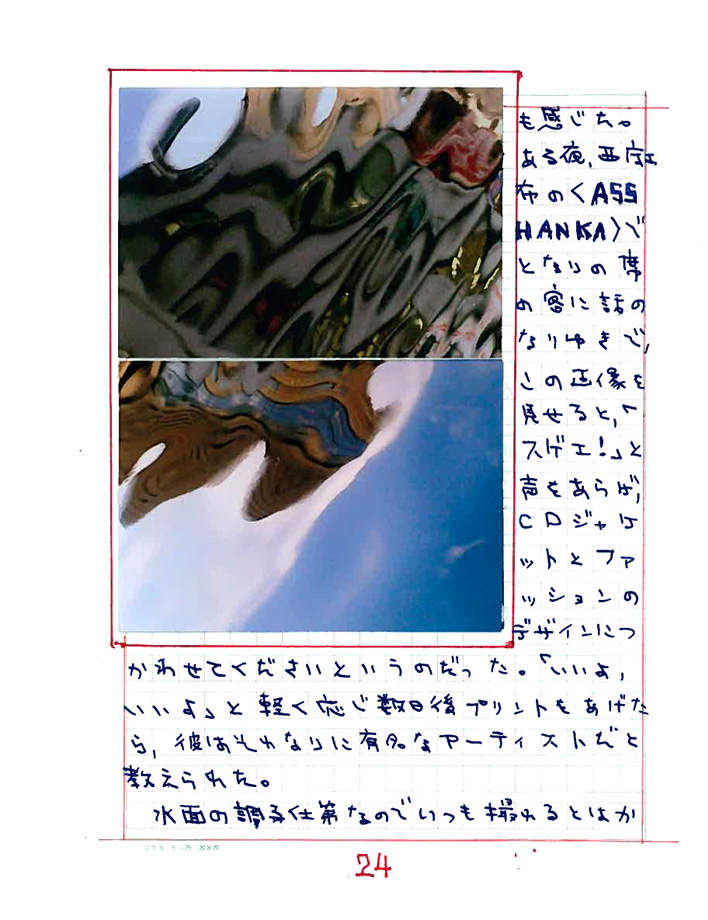 も感じた。
ある夜、西麻
布の〈ASS
HANKA〉で
となりの席
の客に話の
なりゆきで、
この画像を
見せると、「
スゲエ！」と
声をあらげ、
CDジャケ
ットとファ
ッションの
デザインにつ
かわせてくださいというのだった。「いいよ，
いいよ」と軽く応じ数日後プリントをあげた
ら，彼はそれなりに有名なアーティストだと
教えられた。
水面の調子仕第なのでいつも撮れるとはか
24